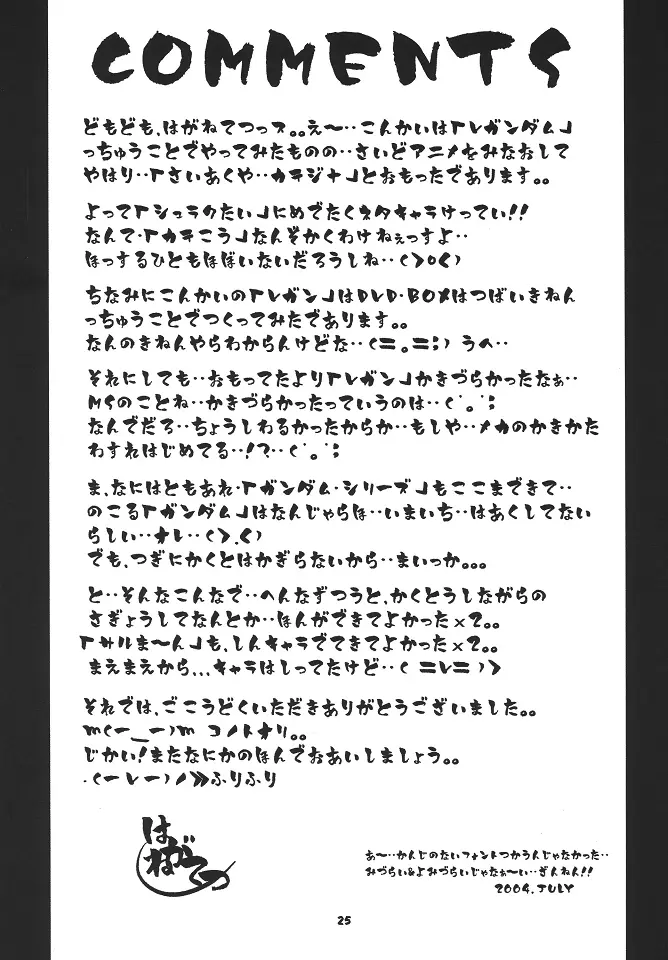 COMMENTS
どもども,はがねてつっス。。え〜‥こんかいは「Vガンダム」
っちゅうことでやってみたものの‥さいどアニメをみなおして
やはり‥「さいあくや‥カテジナ」とおもったであります。。
よって「シュラクたい」にめでたくネタキャラけってい!!
なんで・「カテこう」なんぞかくわけねぇっすよ‥
ほっするひともほぼいないだろうしね‥(>o<)
ちなみにこんかいの「Vガン」はDVD・BOXはつばいきねん
っちゅうことでつくってみたであります。。
なんのきねんやらわからんけどな‥(=。=;) うへ‥
それにしても‥おもってたより「Vガン」かきづらかったなぁ‥
MSのことね‥かきづらかったっていうのは‥(゜。゜;
なんでだろ‥ちょうしわるかったからか‥もしや‥メカのかきかた
わすれはじめてる‥!?‥(゜。゜;
ま,なにはともあれ・「ガンダム・シリーズ」もここまできて‥
のこる「ガンダム」はなんじゃらほ‥いまいち‥はあくしてない
らしい‥オレ‥(>.<)
でも,つぎにかくとはかぎらないから‥まいっか。。。
と‥そんなこんなで‥へんなずつうと,かくとうしながらの
さぎょうしてなんとか‥ほんができてよかった×2。。
「サルま〜ん」も,しんキャラでてきてよかった×2。。
まえまえから...キャラはしってたけど‥( =V= )>
それでは,ごこうどくいただきありがとうございました。。
m(ー__ー)m コノトオリ。。
じかい!またなにかのほんでおあいしましょう。。
.(ーVー)ノ》ふりふり
はがねてつ
あ〜‥かんじのないフォントつかうんじゃなかった‥
みづらい&よみづらいじゃなぁ〜い‥ざんねん!!
2004.JULY
25